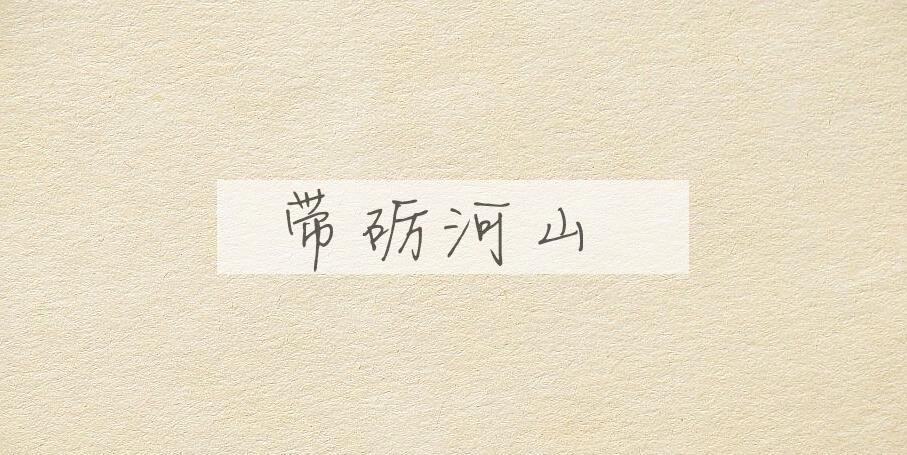 带砺河山